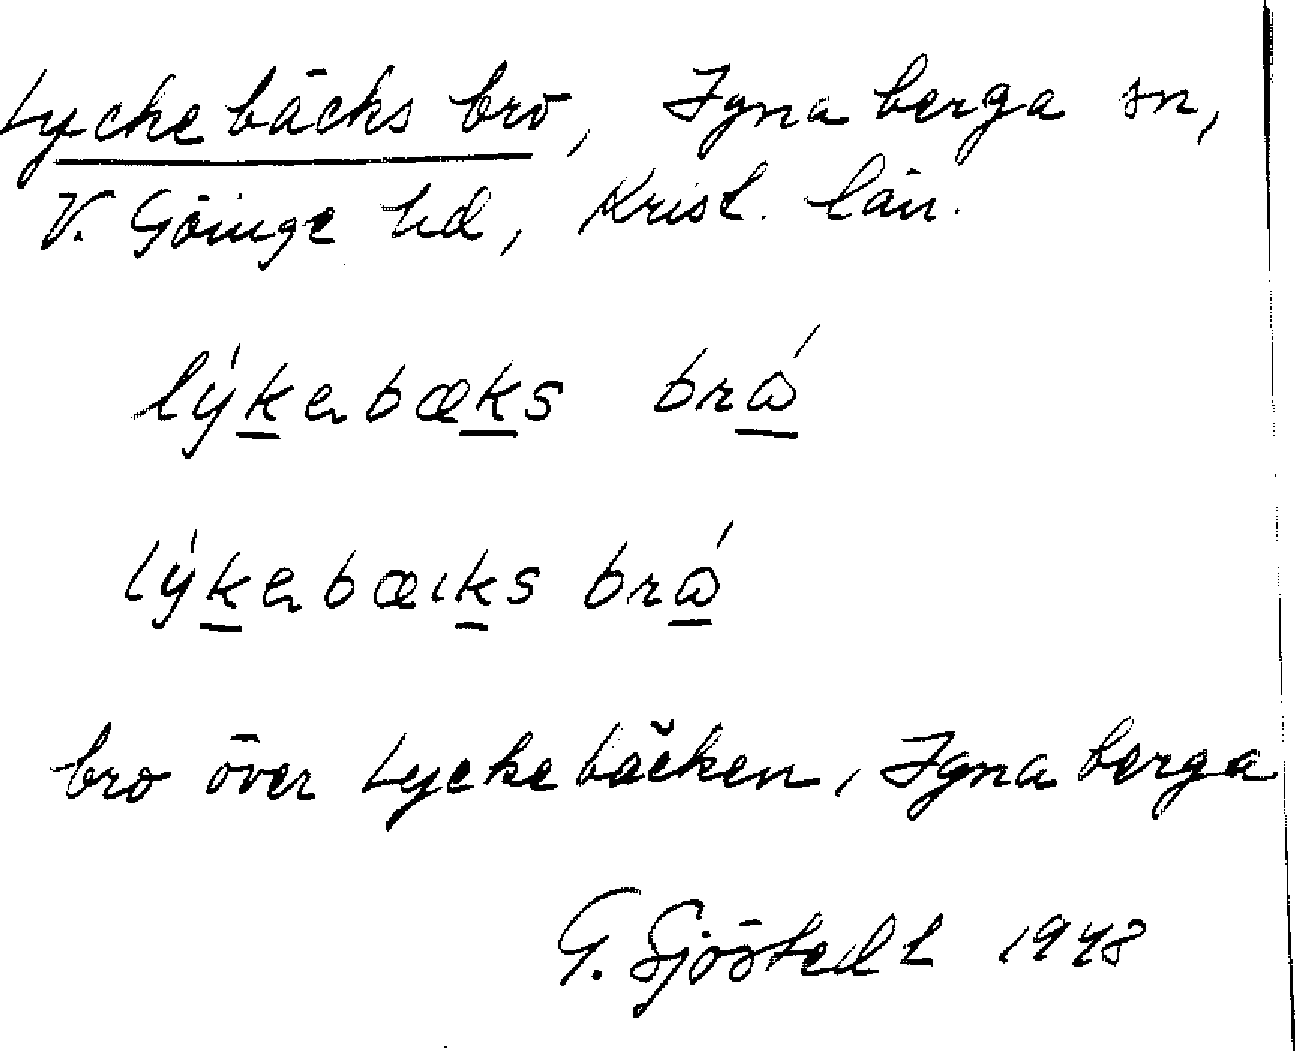 Lyckebäcks bro, Ignaberga sn,
V. Göinge hd, Krist. län.
lýkebæks brǻ
lýkebæıks brǻ
bro över Lyckebäcken, Ignaberga
G. Sjöstedt 1948